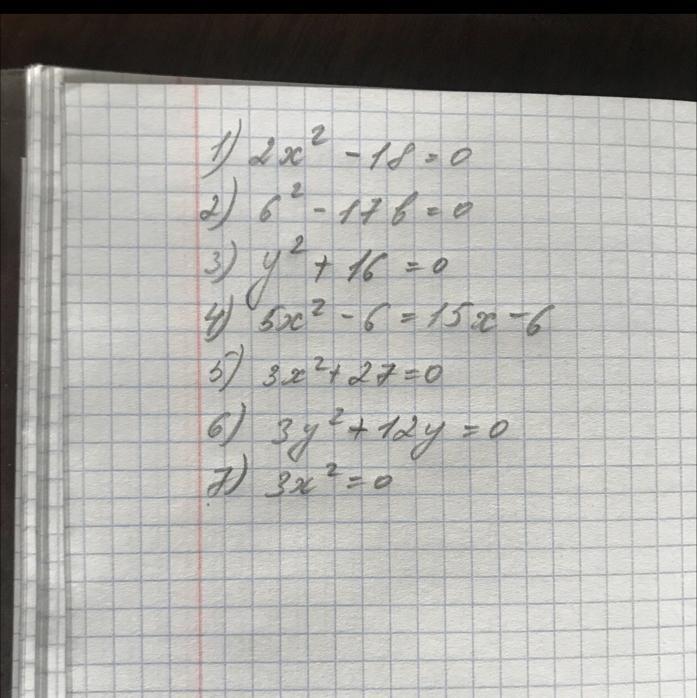 1) 2x² - 18 = 0
2) б² - 17б = 0
3) y² + 16 = 0
4) 5x² - 6 = 15x - 6
5) 3x² + 27 = 0
6) 3y² + 12y = 0
7) 3x² = 0